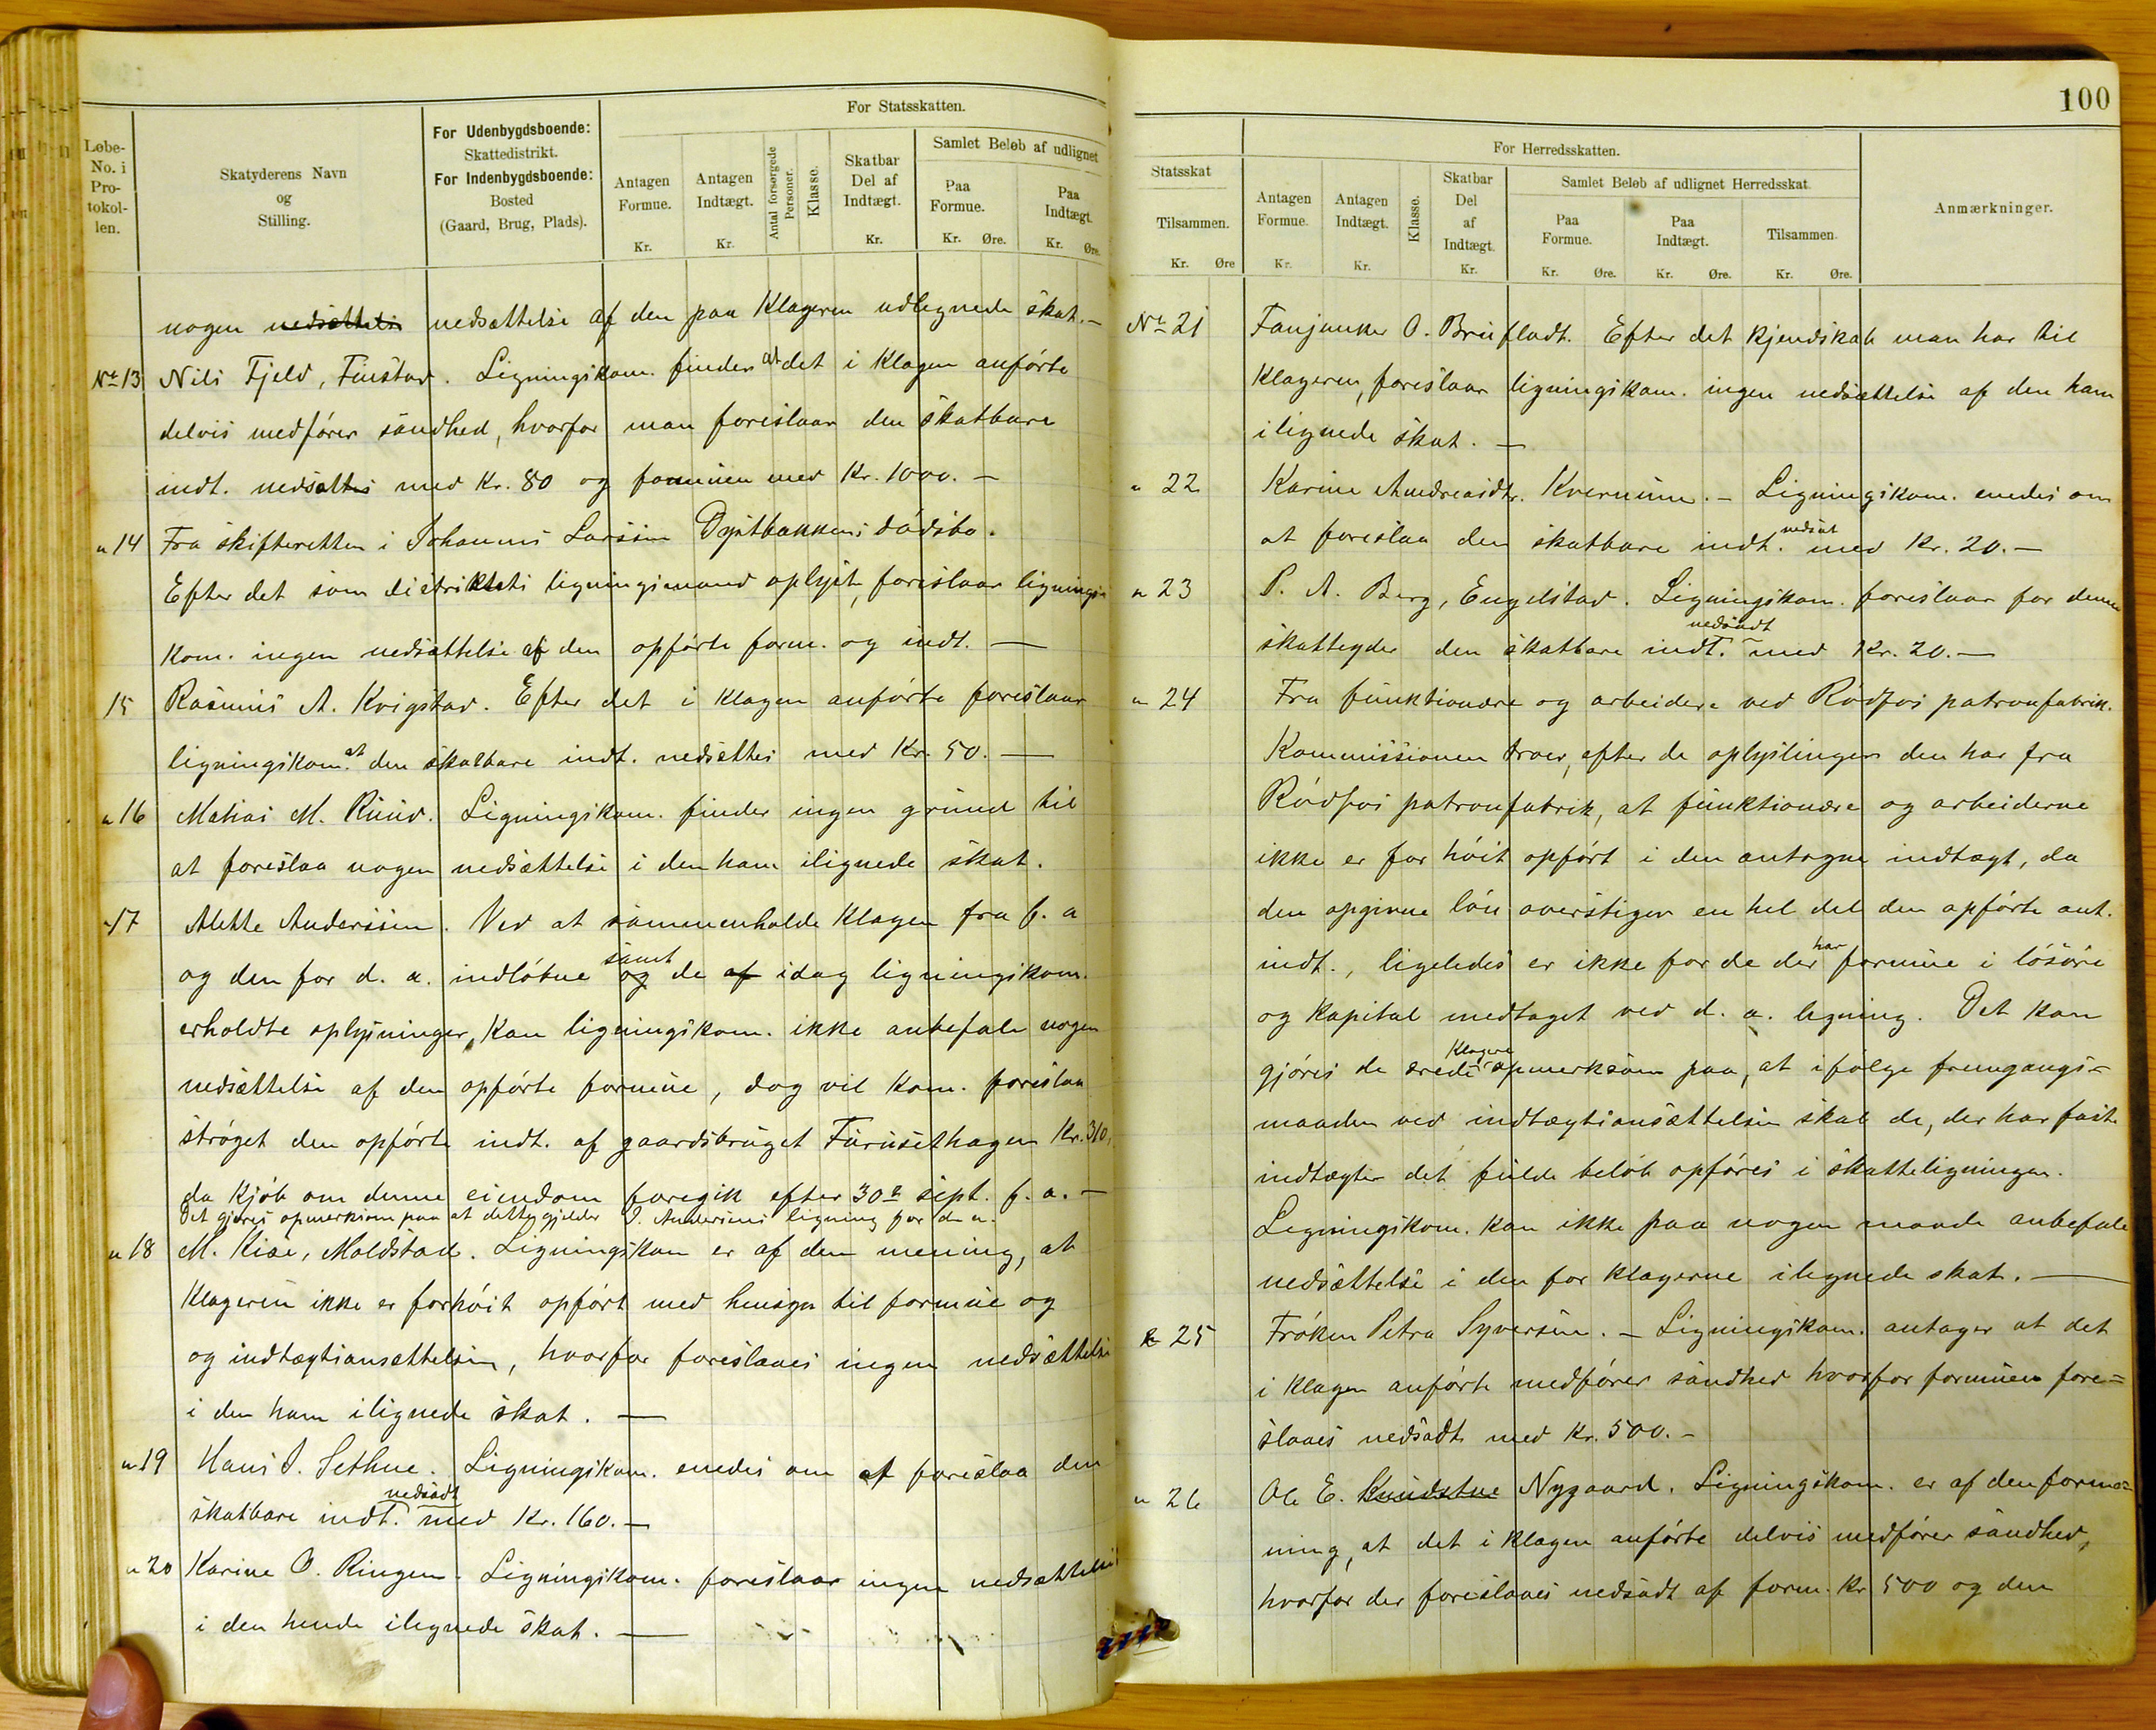 100
Løbe-No. i Protokollen.
Skatyderens Navn og Stilling.
For Udenbygdsboende: Skattedistrikt. For Indenbygdsboende: Bosted (Gaard, Brug, Plads).
For Statsskatten.
Antagen Formue. Kr.
Antagen Indtægt. Kr.
Antal forsørgede Personer.
Klasse.
Skatbar Del af Indtægt. Kr.
Samlet Beløb af udlignet
Paa Formue. Kr. Øre.
Paa Indtægt. Kr. Øre.
nogen nedsættelse nedsættelse af den paa Klageren udlignede skat. —
No 13 Nils Fjeld, Finstad. Ligningskom. finder at det i Klagen anførte
delvis medfører sandhed, hvorfor man foreslaar den skatbare
indt. nedsættes med Kr. 80 og formuen med Kr. 1000. —
" 14 Fra skifteretten i Johannes Larsen Dystbakkens dødsbo.
Efter det som distriktets ligningsmand oplyst, foreslaar lignings
kom. ingen nedsættelse af den opførte form. og indt. —
15 Rasmus A. Kvigstad. Efter det i klagen anførte foreslaar
ligningskom. at den skatbare indt. nedsættes med Kr. 50. —
" 16 Matias M. Ruud. Ligningskom. finder ingen grund til
at foreslaa nogen nedsættelse i den ham ilignede skat.
" 17 Mette Anderssen. Ved at sammenholde Klagen fra f. a
og den for d. a. indløbne og samt de af idag ligningskom.
erholdte oplysninger, kan ligningskom. ikke anbefale nogen
nedsættelse af den opførte formue, dog vil kom. foreslaa
strøget den opførte indt. af gaardsbruget Furusethagen Kr. 310,
da kjøb om denne eiendom foregik efter 30e sept. f. a. —
Det gjøres opmerksom paa at dette gjelder J. Andersens ligning for d. a.
" 18 M. Kise, Moldstad. Ligningskom er af den mening, at
Klageren ikke er forhøit opført med hensyn til formue og
og indtægtsansættelsen, hvorfor foreslaaes ingen nedsættelse
i den ham ilignede skat. —
" 19 Hans J. Sethne. Ligningskom. enedes om at foreslaa den
skatbare indt. nedsadt med Kr. 160. —
" 20 Karine O. Ringen. Ligningskom. foreslaar ingen nedsættelse
i den hende ilignede skat. —
Statsskat Tilsammen. Kr. Øre
For Herredsskatten.
Antagen Formue. Kr.
Antagen Indtægt. Kr.
Klasse.
Skatbar Del af Indtægt. Kr.
Samlet Beløb af udlignet Herredsskat.
Paa Formue. Kr. Øre.
Paa Indtægt. Kr. Øre.
Tilsammen. Kr. Øre.
Anmærkninger.
No 21 Fanjunker O. Breifladt. Efter det kjendskab man har til
Klageren, foreslaar ligningskom. ingen nedsættelse af den ham
ilignede skat. —
" 22 Karine Andreasdtr. Kvernum. — Ligningskom. enedes om
at foreslaa den skatbare indt. nedsat med Kr. 20. —
" 23 P. A. Berg, Engelstad. Ligningskom. foreslaar for denne
skatteyder den skatbare indt. nedsadt med Kr. 20. —
" 24 Fra funktionære og arbeidere ved Rødfos patronfabrik.
Kommissionen troer, efter de oplysninger den har fra
Rødfos patronfabrik, at funktionære og arbeiderne
ikke er for høit opført i den antagne indtægt, da
den opgivne løn overstiger en hel del den opførte ant.
indt., ligeledes er ikke for de der har formue i løsøre
og kapital medtaget ved d. a. ligning. Det kan
gjøres de ærede Klagere opmerksom paa, at ifølge fremgangs-
maaden ved indtægtsansættelsen skal de, der har faste
indtægter det fulde beløb opføres i skatteligningen.
Ligningskom. kan ikke paa nogen maade anbefale
nedsættelse i den for klagerne ilignede skat. —
" 25 Frøken Petra Syversen. — Ligningskom. antager at det
i klagen anførte medfører sandhed hvorfor formuen fore=
slaaes nedsadt med Kr. 500. —
" 26 Ole E. Nygaard. Ligningskom. er af den forme=
ning, at det i klagen anførte delvis medfører sandhed,
hvorfor der foreslaaes nedsadt af form. Kr 500 og den